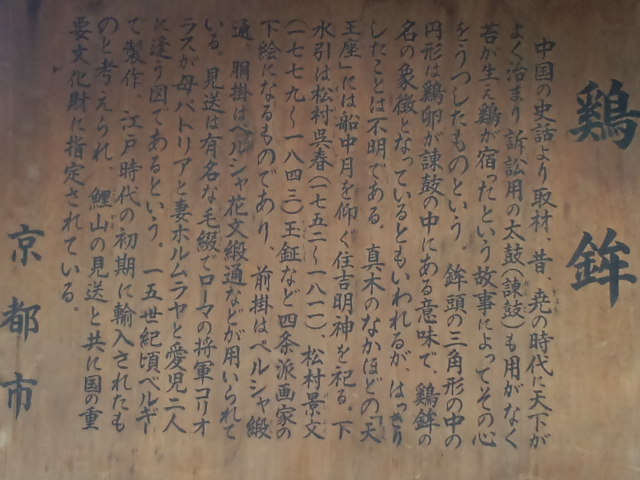 鶏鉾
中国の史話より取材、昔、尭の時代に天下が
よく治まり訴訟用の太鼓(諫鼓)も用がなく
苔が生え鶏が宿ったという故事によってその心
をうつしたものという。鉾頭の三角形の中の
円形は鶏卵が諫鼓の中にある意味で、鶏鉾の
名の象徴となっているともいわれるが、はっきり
したことは不明である。真木のなかほどの「天
王座」には船中月を仰ぐ住吉明神を祀る。下
水引は松村呉春(一七五二〜一八一一)松村景文
(一七七九〜一八四三)玉鉦など四条派画家の
下絵になるものであり、前掛はペルシャ緞
通、胴掛はペルシャ花文緞通などが用いられて
いる。見送は有名な毛綴でローマの将軍コリオ
ラスが母バトリアと妻ホルムラヤと愛児二人
に逢う図であるという。一五世紀頃ベルギー
で製作、江戸時代の初期に輸入されたも
のと考えられ、鯉山の見送と共に国の重
要文化財に指定されている。
京都市